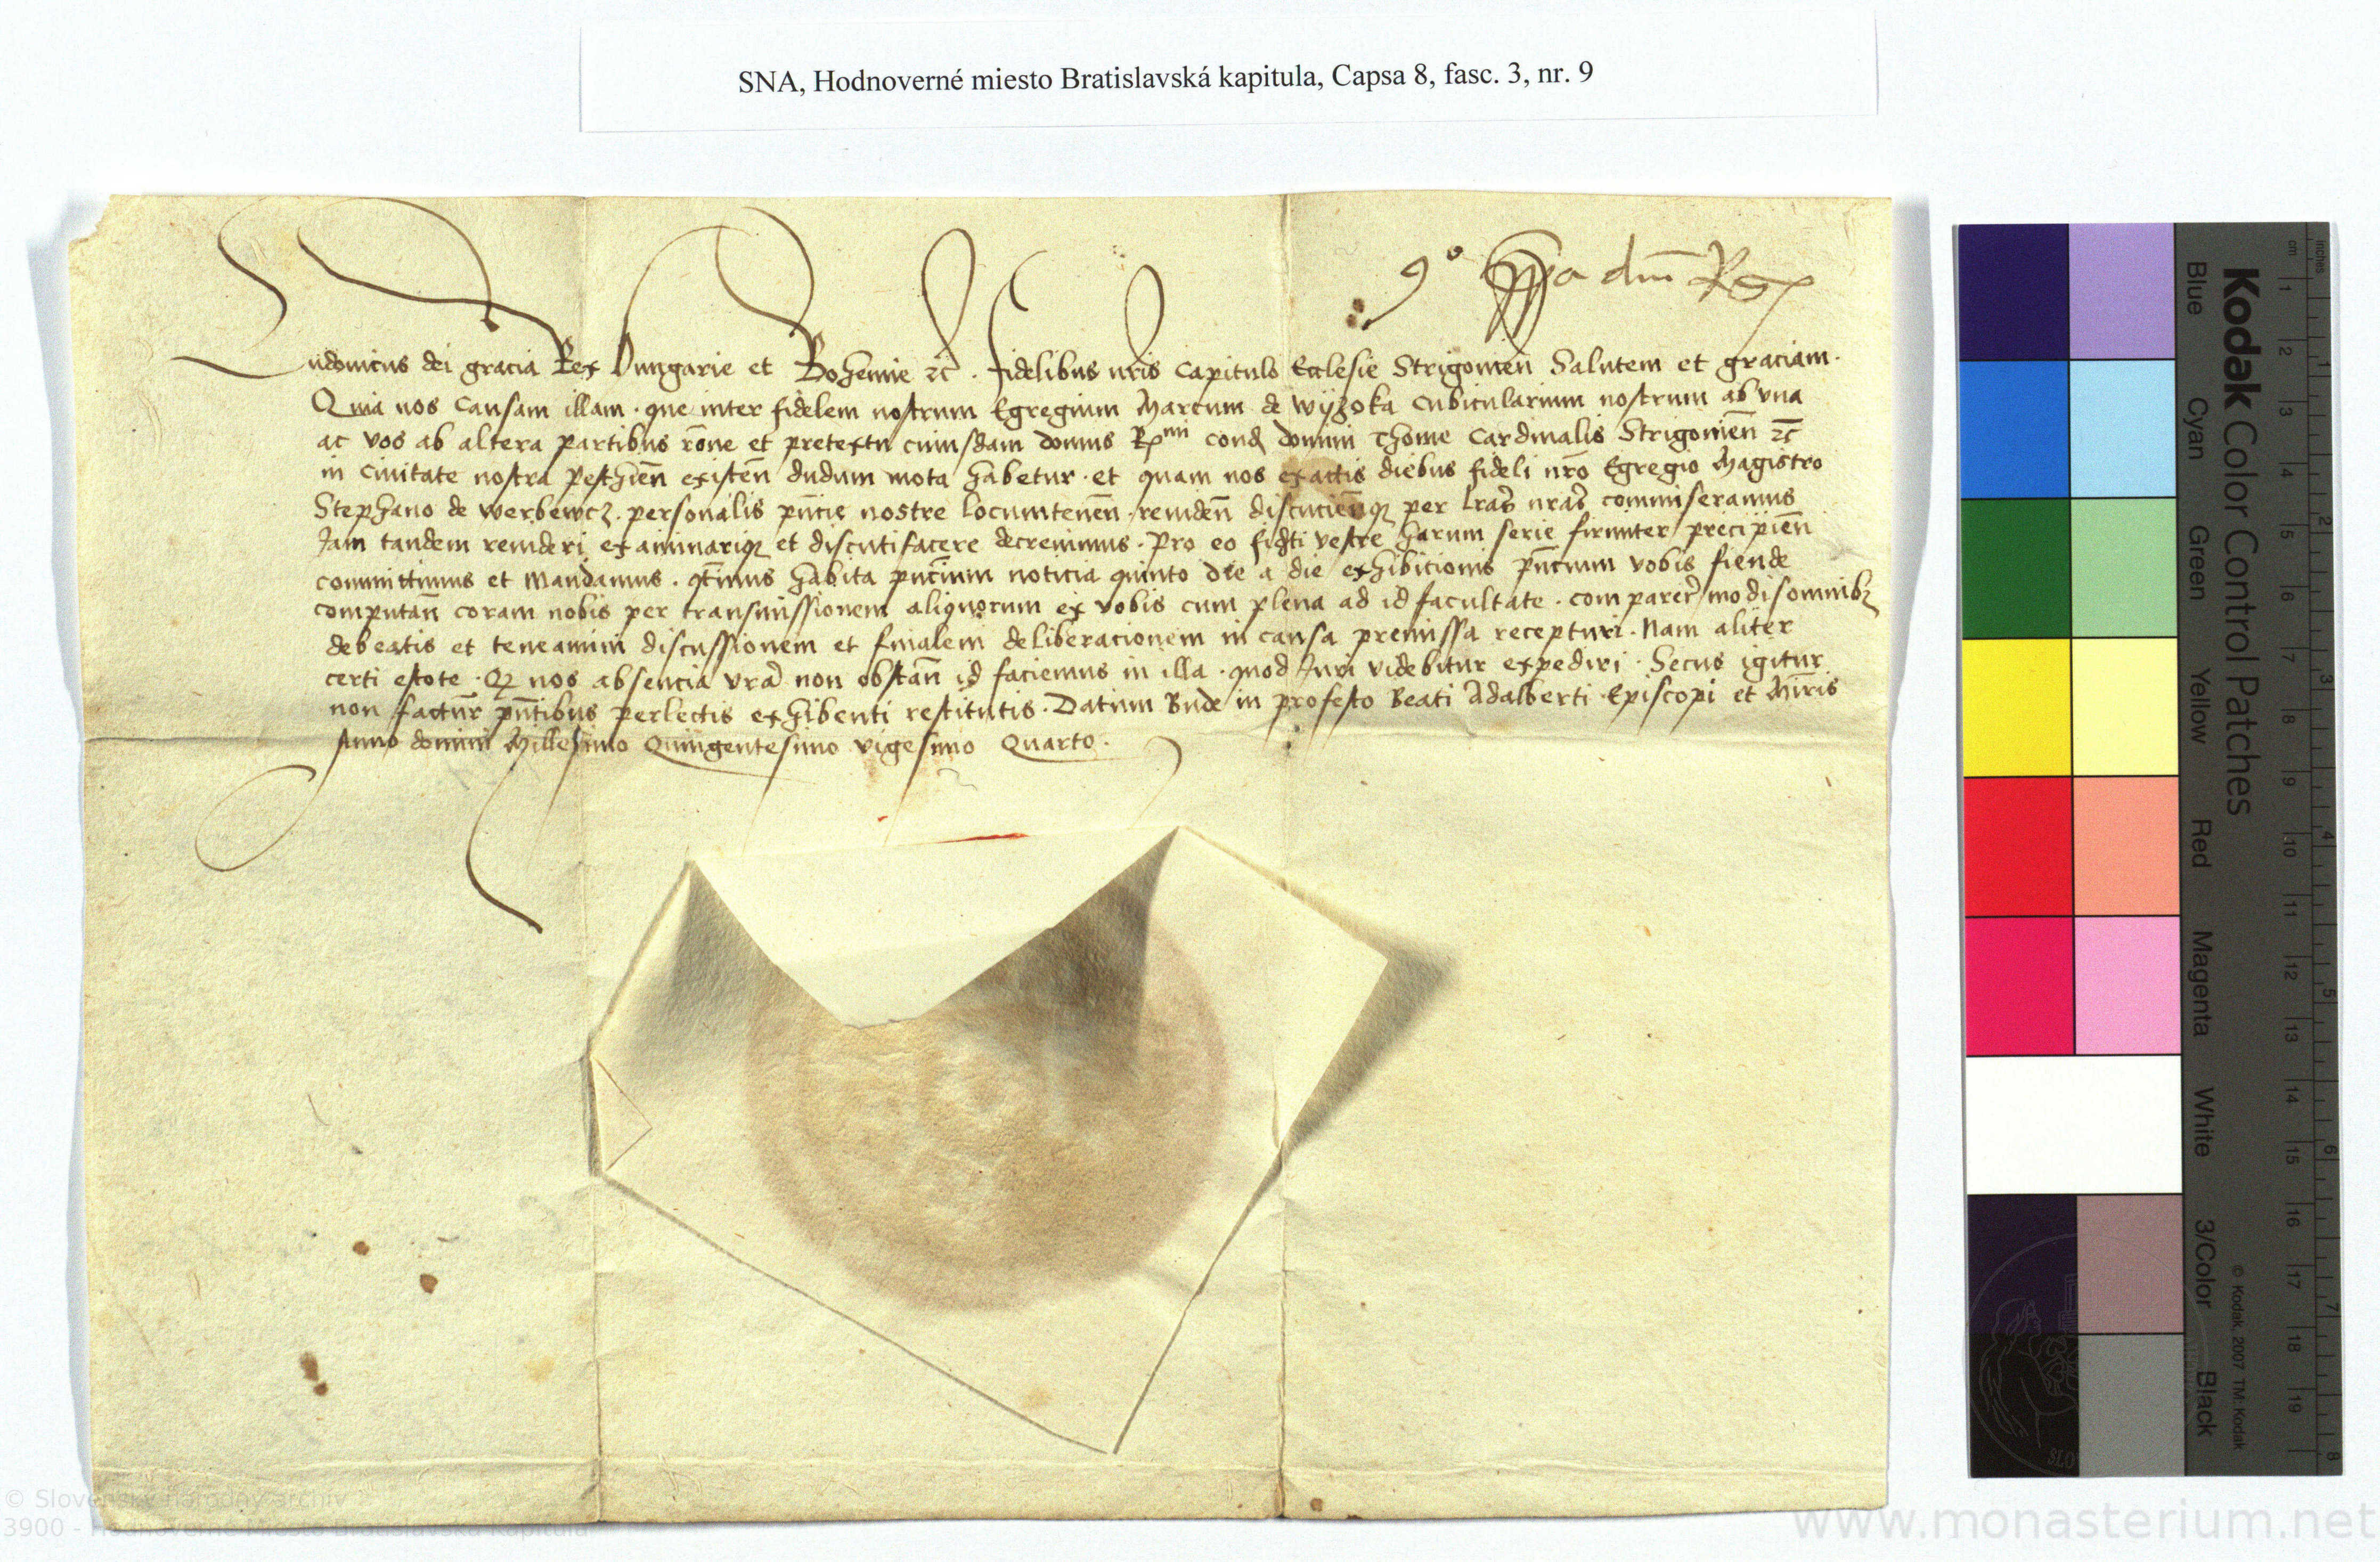 SNA, Hodnoverné miesto Bratislavská kapitula, Capsa 8, fasc. 3, nr. 9
dm̄ Re
Ludovicus dei gracia Rex Hungarie et Bohemie ꝛc̄ . fidelibus nr̄is Capitulo Ecclesie Strigonien̄ Salutem et graciam .
Quia nos causam illam . que inter fidelem nostrum Egregium Marcum de Wyzoka Cubicularium nostrum ab una
ac vos ab altera partibus rōne et pretextu cuiusdam domus R^mi cond domini Thome Cardinalis Strigonien̄ ꝛc̄
in Civitate nostra Pesthien̄ existen̄ dudum mota habetur . et quam nos exactis diebus fideli nr̄o Egregio Magistro
Stephano de Werbewcz . personalis pn̄cie nostre locumtenen̄ . reviden̄ discucien̄q per lr̄as nr̄as commiseramus
Jam tandem revideri examinariq et discuti facere decrevimus . Pro eo fidti vestre harum serie firmiter precipien̄
committimus et mandamus . qt̄inus habita pn̄cium noticia quinto die a die exhibicionis pn̄cium vobis fiende
computan̄ coram nobis per transmissionem aliquorum ex vobis cum plena ad id facultate . comparer modisomnibꝫ
debeatis et teneamini discussionem et finalem deliberacionem in causa premissa recepturi . Nam aliter
certi estote . Qꝫ nos absencia vrā non obstan̄ id faciemus in illa . quod Juri videbitur expediri . Secus igitur
non factur̄ pn̄tibus perlectis exhibenti restitutis . Datum Bude in profesto Beati Adalberti Episcopi et Mr̄is
Anno domini Millesimo Quingentesimo vigesimo Quarto .
Kodak Color Control Patches
Blue Cyan Green Yellow Red Magenta White 3/Color Black
© Kodak, 2007 TM: Kodak
cm 1 2 3 4 5 6 7 8 9 10 11 12 13 14 15 16 17 18 19
inches 1 2 3 4 5 6 7 8
© Slovenský národný archív
3900 - Hodnoverné Miesto Bratislavská Kapitula
www.monasterium.net